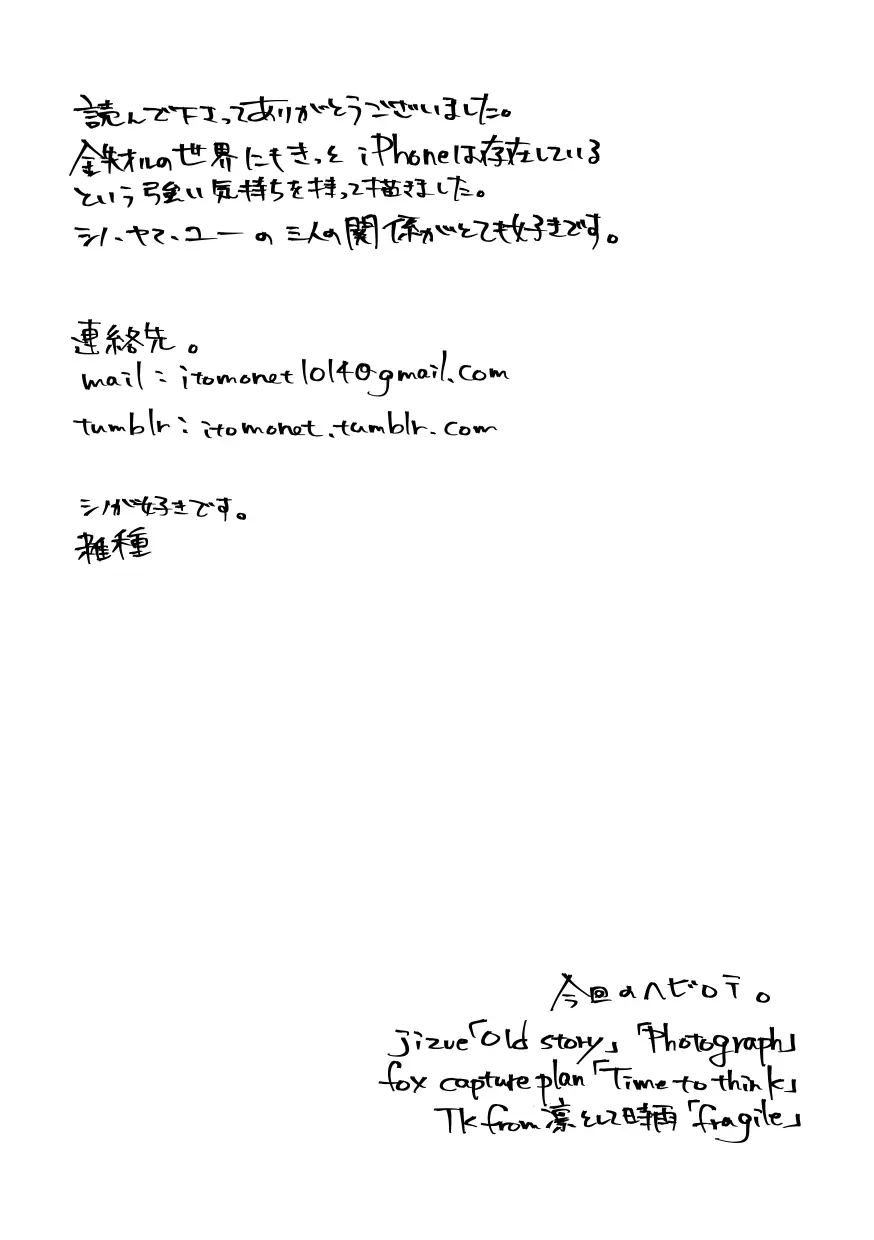 読んで下さってありがとうございました。
鉄オルの世界にもきっと iPhoneは存在している
という強い気持ちを持って描きました。
シノ、ヤマ、ユーの三人の関係がとても好きです。
連絡先。
mail：itomonet1014@gmail.com
tumblr：itomonet.tumblr.com
シノが好きです。
雑種
今回のヘビロテ。
jizue「Old story」「Photograph」
fox capture plan「Time to think」
TK from 凛として時雨「fragile」